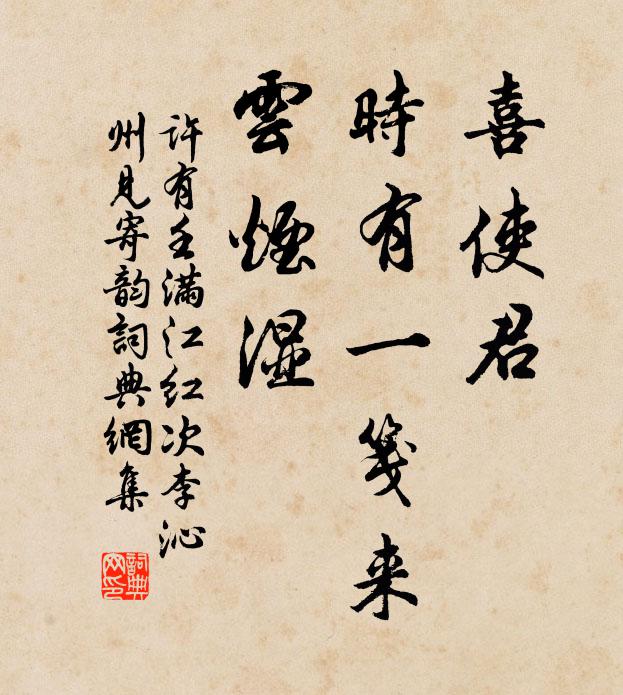 喜使君
時有一箋来
雲煙湿
許有壬滿江红次李沁
州見寄韵詞典網集
詞典
网印